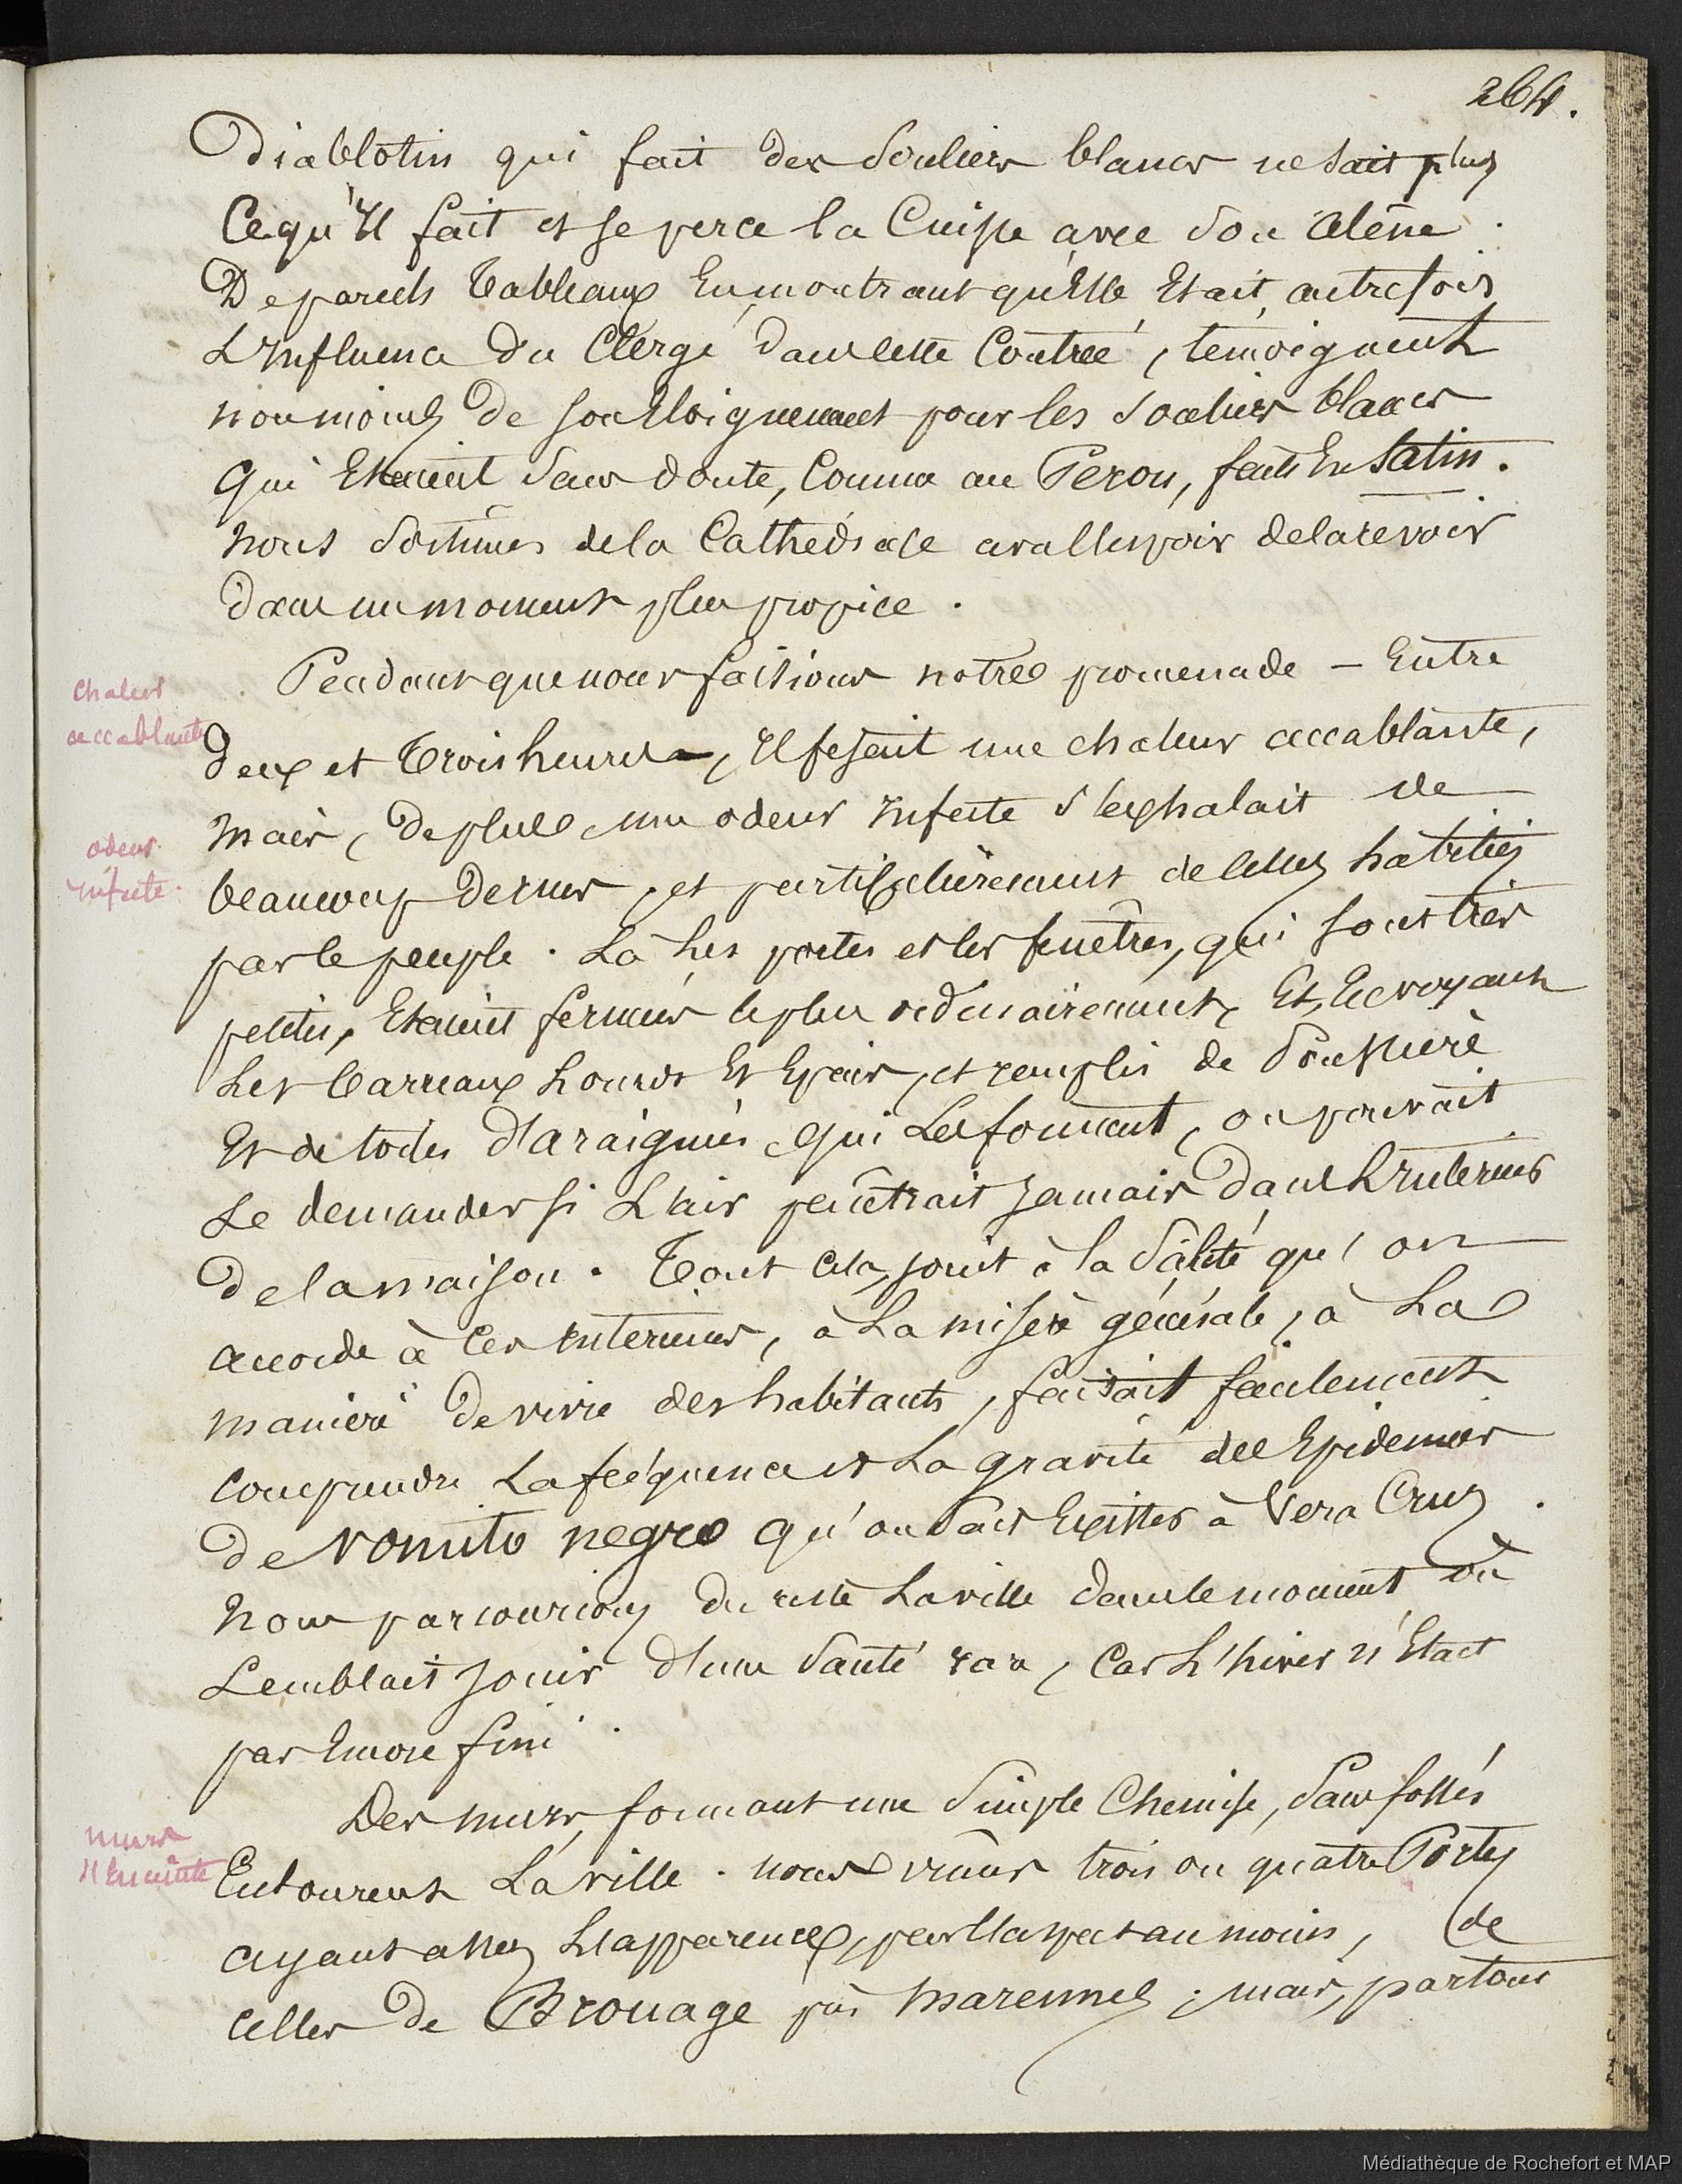 264.
Diablotin qui fait des Souliers blancs ne sait plus
Ce qu'Il fait et se perce la Cuisse avec son alène.
De pareils Tableaux En montrant qu'Elle Etait, autrefois,
L'Influence du Clergé dans cette Contrée, témoignent
non moins de son Eloignement pour les souliers blancs
qui Etaient sans doute, Comme au Perou, faits En satin.
nous sortimes de la Cathedrale avec l'espoir de la revoir
dans un moment plus propice.
Pendant que nous faisions notre promenade - Entre
chaleur
accablante
deux et trois heures -, Il fesait une chaleur accablante,
mais, de plus une odeur Infecte s'exhalait de
odeur
infecte.
beaucoup de rues, et particulièrement de celles habitées
par le peuple. Là Les portes et les fenêtres, qui sont très
petites, Etaient fermées le plus ordinairement, Et, En voyant
Les barreaux Lourds Et Epais, et remplis de Poussière
Et de toiles d'araignées qui Les forment, on pouvait
se demander si L'air pénétrait jamais dans L'Interieur
de la maison. Tout cela, joint à la saleté qu'on
accorde à Ces Interieurs, à La misère générale, à La
manière de vivre des habitants, faisait facilement
comprendre La fréquence et La gravité des Epidemies
de vomito negro qu'on sait Exister à Vera Cruz.
nous parcourions du reste La ville dans le moment où
semblait jouir d'une santé rare, Car L'hiver n'Etait
pas Encore fini.
Des murs, formant une simple Chemise, sans fossés
murs
d'Enceinte
Entourent La ville. nous vîmes trois ou quatre Portes
ayant assez L'apparence, par l'aspect au moins, de
celles de Brouage près Marennes ; mais, partout
Médiathèque de Rochefort et MAP